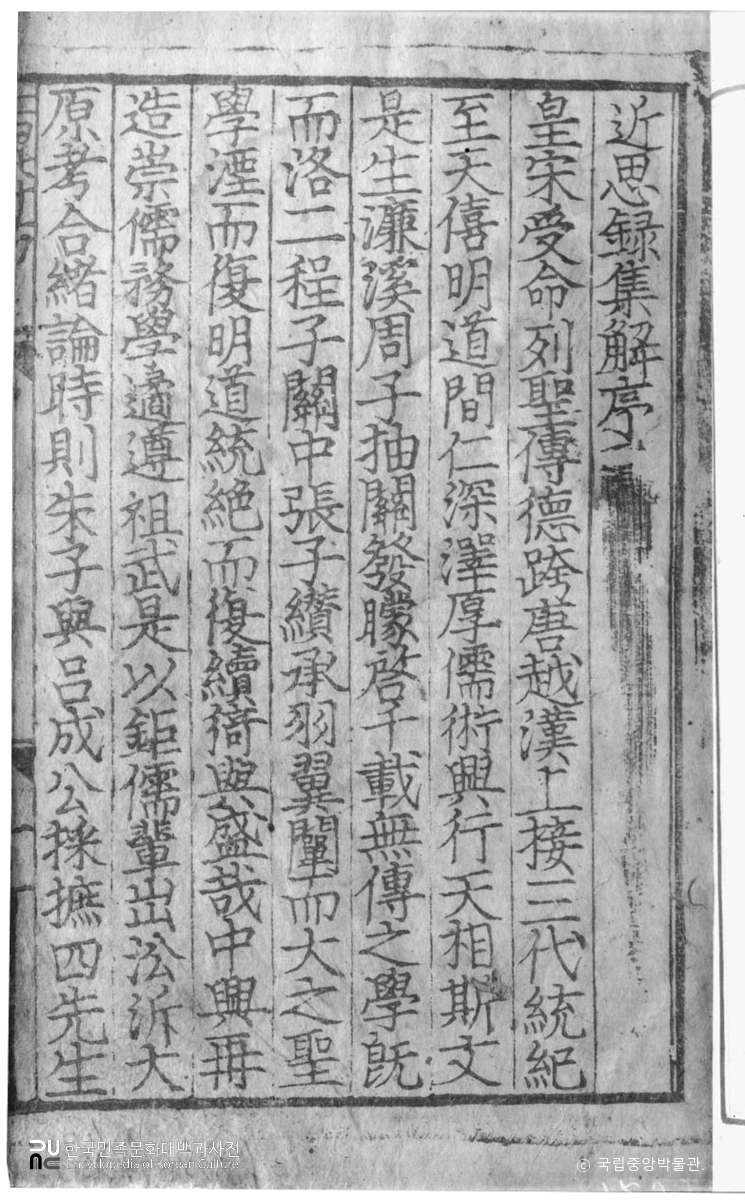 近思録集解序
皇宋受命列聖傳德跨唐越漢上接三代統紀
至天僖明道間仁深澤厚儒術興行天相斯文
是生濂溪周子抽關發矇啓千載無傳之學既
而洛二程子關中張子纘承羽翼闡而大之聖
學湮而復明道統絶而復續猗與盛哉中興再
造崇儒務學遹遵祖武是以鉅儒輩出沿泝大
原考合緒論時則朱子與呂成公採摭四先生
한국민족문화대백과사전
Encyclopedia of Korean Culture
ⓒ 국립중앙박물관.